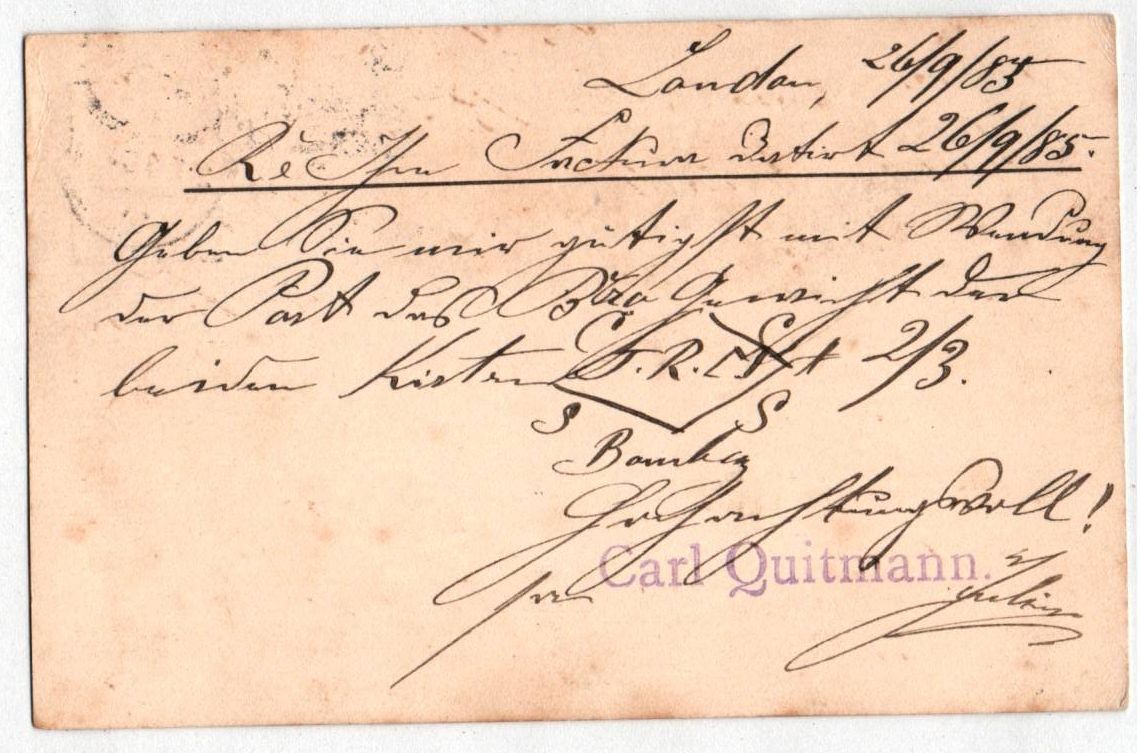 London, 26/9/85
Re Ihre Factura datirt 26/9/85.
Geben Sie mir gütigst mit Wendung
der Post das Btto Gewicht der
beiden Kisten F.R.C. 2/3.
S S
Bombay
Hochachtungsvoll!
Carl Quitmann.
pa